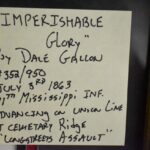 "IMPERISHABLE
Glory"
by DALE GALLON
#352/950
JULY 3RD 1863
11TH MISSISSIPPI INF.
ADVANCING ON UNION LINE
AT CEMETARY RIDGE
"LONGSTREETS ASSAULT"